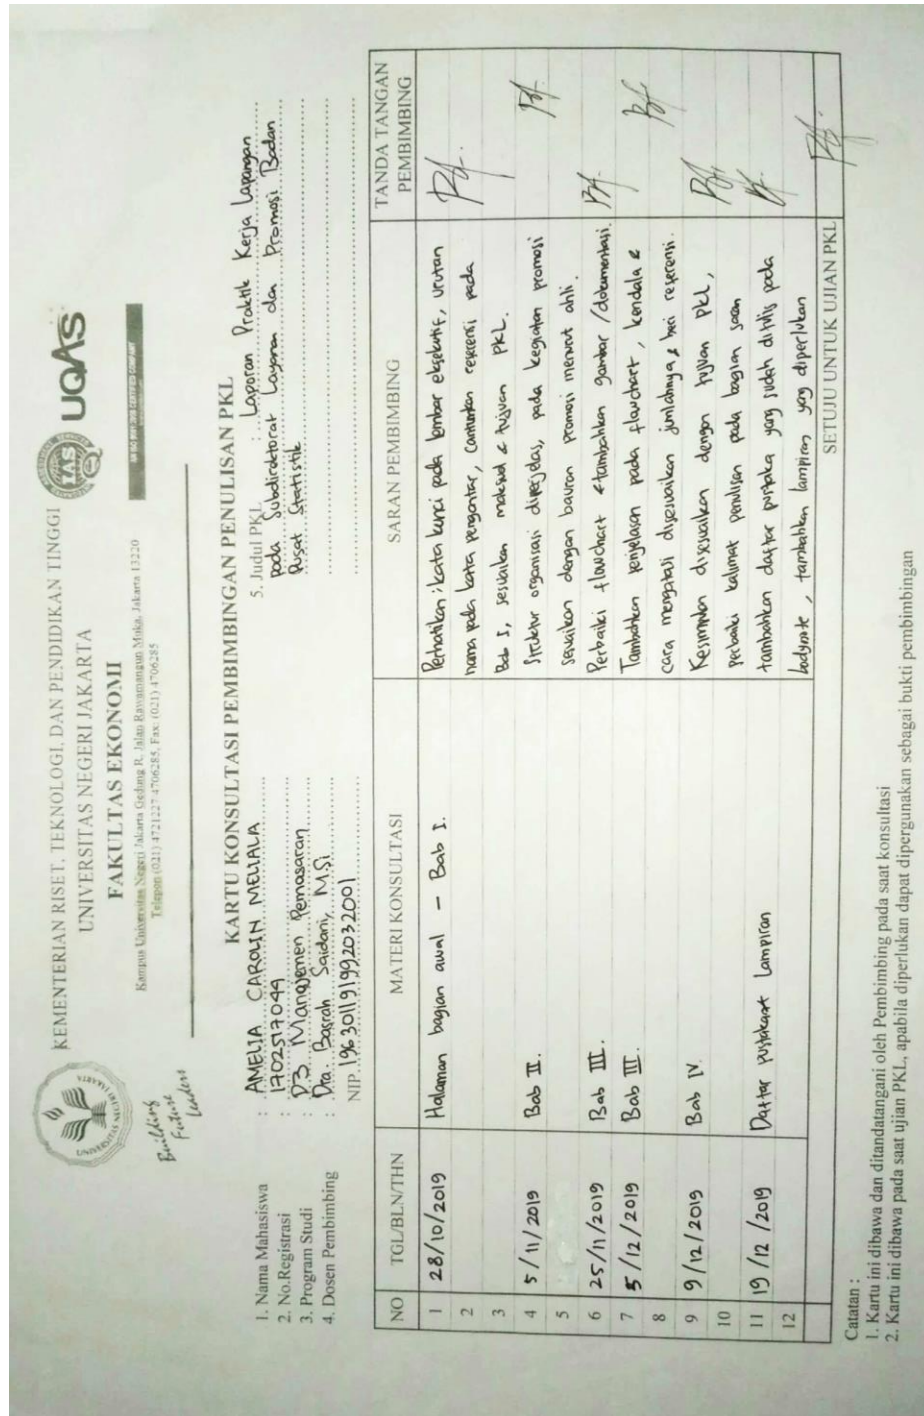 KEMENTERIAN RISET, TEKNOLOGI, DAN PENDIDIKAN TINGGI
UNIVERSITAS NEGERI JAKARTA
FAKULTAS EKONOMI
Kampus Universitas Negeri Jakarta Gedung R, Jalan Rawamangun Muka, Jakarta 13220
Telepon (021) 4721227/4706285, Fax: (021) 4706285
Building
Future
Leaders
IAS
UQAS
KARTU KONSULTASI PEMBIMBINGAN PENULISAN PKL
1. Nama Mahasiswa : AMELIA CAROLIN MELIALA
2. No.Registrasi : 1702517049
3. Program Studi : D3 Manajemen Pemasaran
4. Dosen Pembimbing : Dra. Basrah Saidani, M.Si
NIP. 196301191992032001
5. Judul PKL : Laporan Praktik Kerja Lapangan
pada Subdirektorat Layanan dan Promosi Badan
Pusat Statistik
NO TGL/BLN/THN MATERI KONSULTASI SARAN PEMBIMBING TANDA TANGAN PEMBIMBING
1 28/10/2019 Halaman bagian awal - Bab I. Perhatikan : kata kunci pada lembar eksekutif, urutan
2 nama pada kata pengantar, cantumkan referensi pada
3 Bab I, sesuaikan maksud & tujuan PKL.
4 5/11/2019 Bab II. Struktur organisasi diperjelas, pada kegiatan promosi
5 sesuaikan dengan bauran promosi menurut ahli.
6 25/11/2019 Bab III. Perbaiki flowchart & tambahkan gambar/dokumentasi.
7 5/12/2019 Bab III. Tambahkan penjelasan pada flowchart, kendala &
8 cara mengatasi disesuaikan jumlahnya & beri referensi.
9 9/12/2019 Bab IV. Kesimpulan disesuaikan dengan tujuan PKL,
10 perbaiki kalimat penulisan pada bagian saran
11 19/12/2019 Daftar pustaka Lampiran tambahkan daftar pustaka yang sudah ditulis pada
12 bodynote, tambahkan lampiran yang diperlukan
SETUJU UNTUK UJIAN PKL
Catatan :
1. Kartu ini dibawa dan ditandatangani oleh Pembimbing pada saat konsultasi
2. Kartu ini dibawa pada saat ujian PKL, apabila diperlukan dapat dipergunakan sebagai bukti pembimbingan